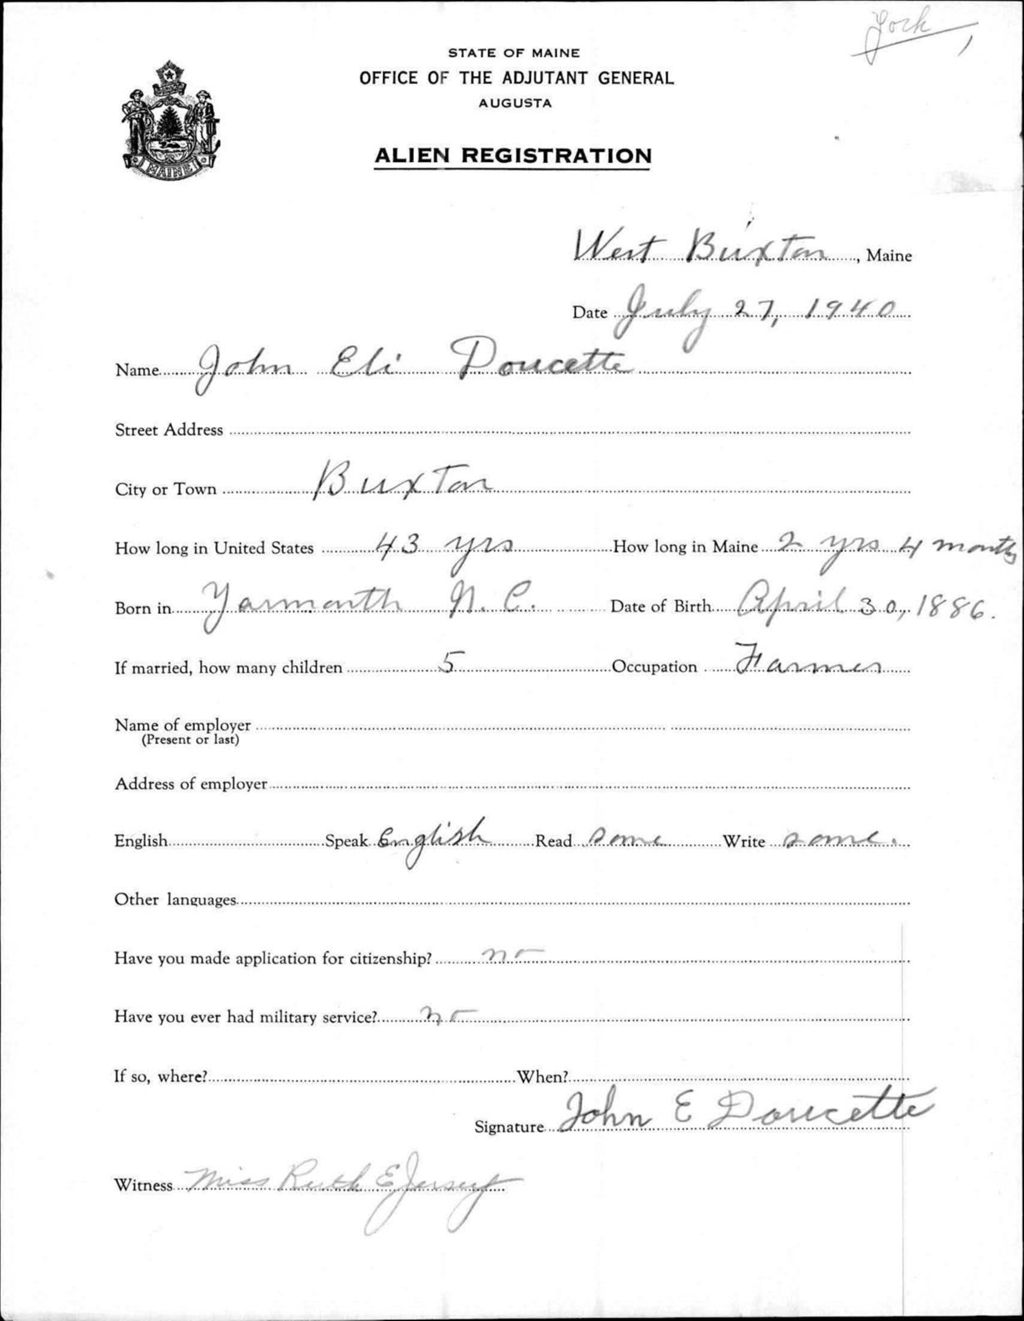 York,
STATE OF MAINE
OFFICE OF THE ADJUTANT GENERAL
AUGUSTA
ALIEN REGISTRATION
MAINE
West Buxton, Maine
Date July 27, 1940
Name John Eli Doucette
Street Address
City or Town Buxton
How long in United States 43 yrs How long in Maine 2 yrs 4 months
Born in Yarmouth N. C. Date of Birth April 30, 1886.
If married, how many children 5 Occupation Farmer
Name of employer
(Present or last)
Address of employer
English Speak English Read some Write some.
Other languages
Have you made application for citizenship? no
Have you ever had military service? no
If so, where? When?
Signature John E Doucette
Witness Miss Ruth E Jersey